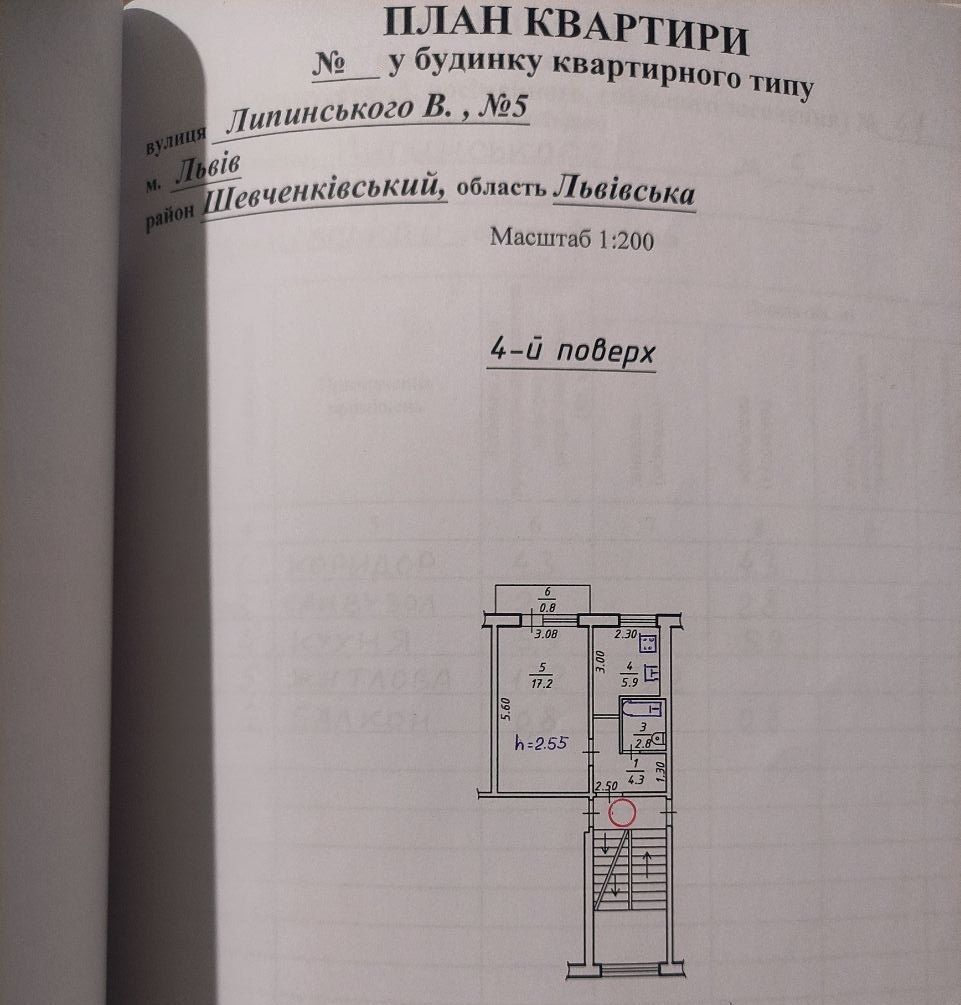 ПЛАН КВАРТИРИ
№___ у будинку квартирного типу
вулиця Липинського В. , №5
м. Львів
район Шевченківський, область Львівська
Масштаб 1:200
4-й поверх
6
0.8
3.08
2.30
5
17.2
3.00
4
5.9
5.60
3
2.8
h=2.55
1
4.3
1.30
2.50